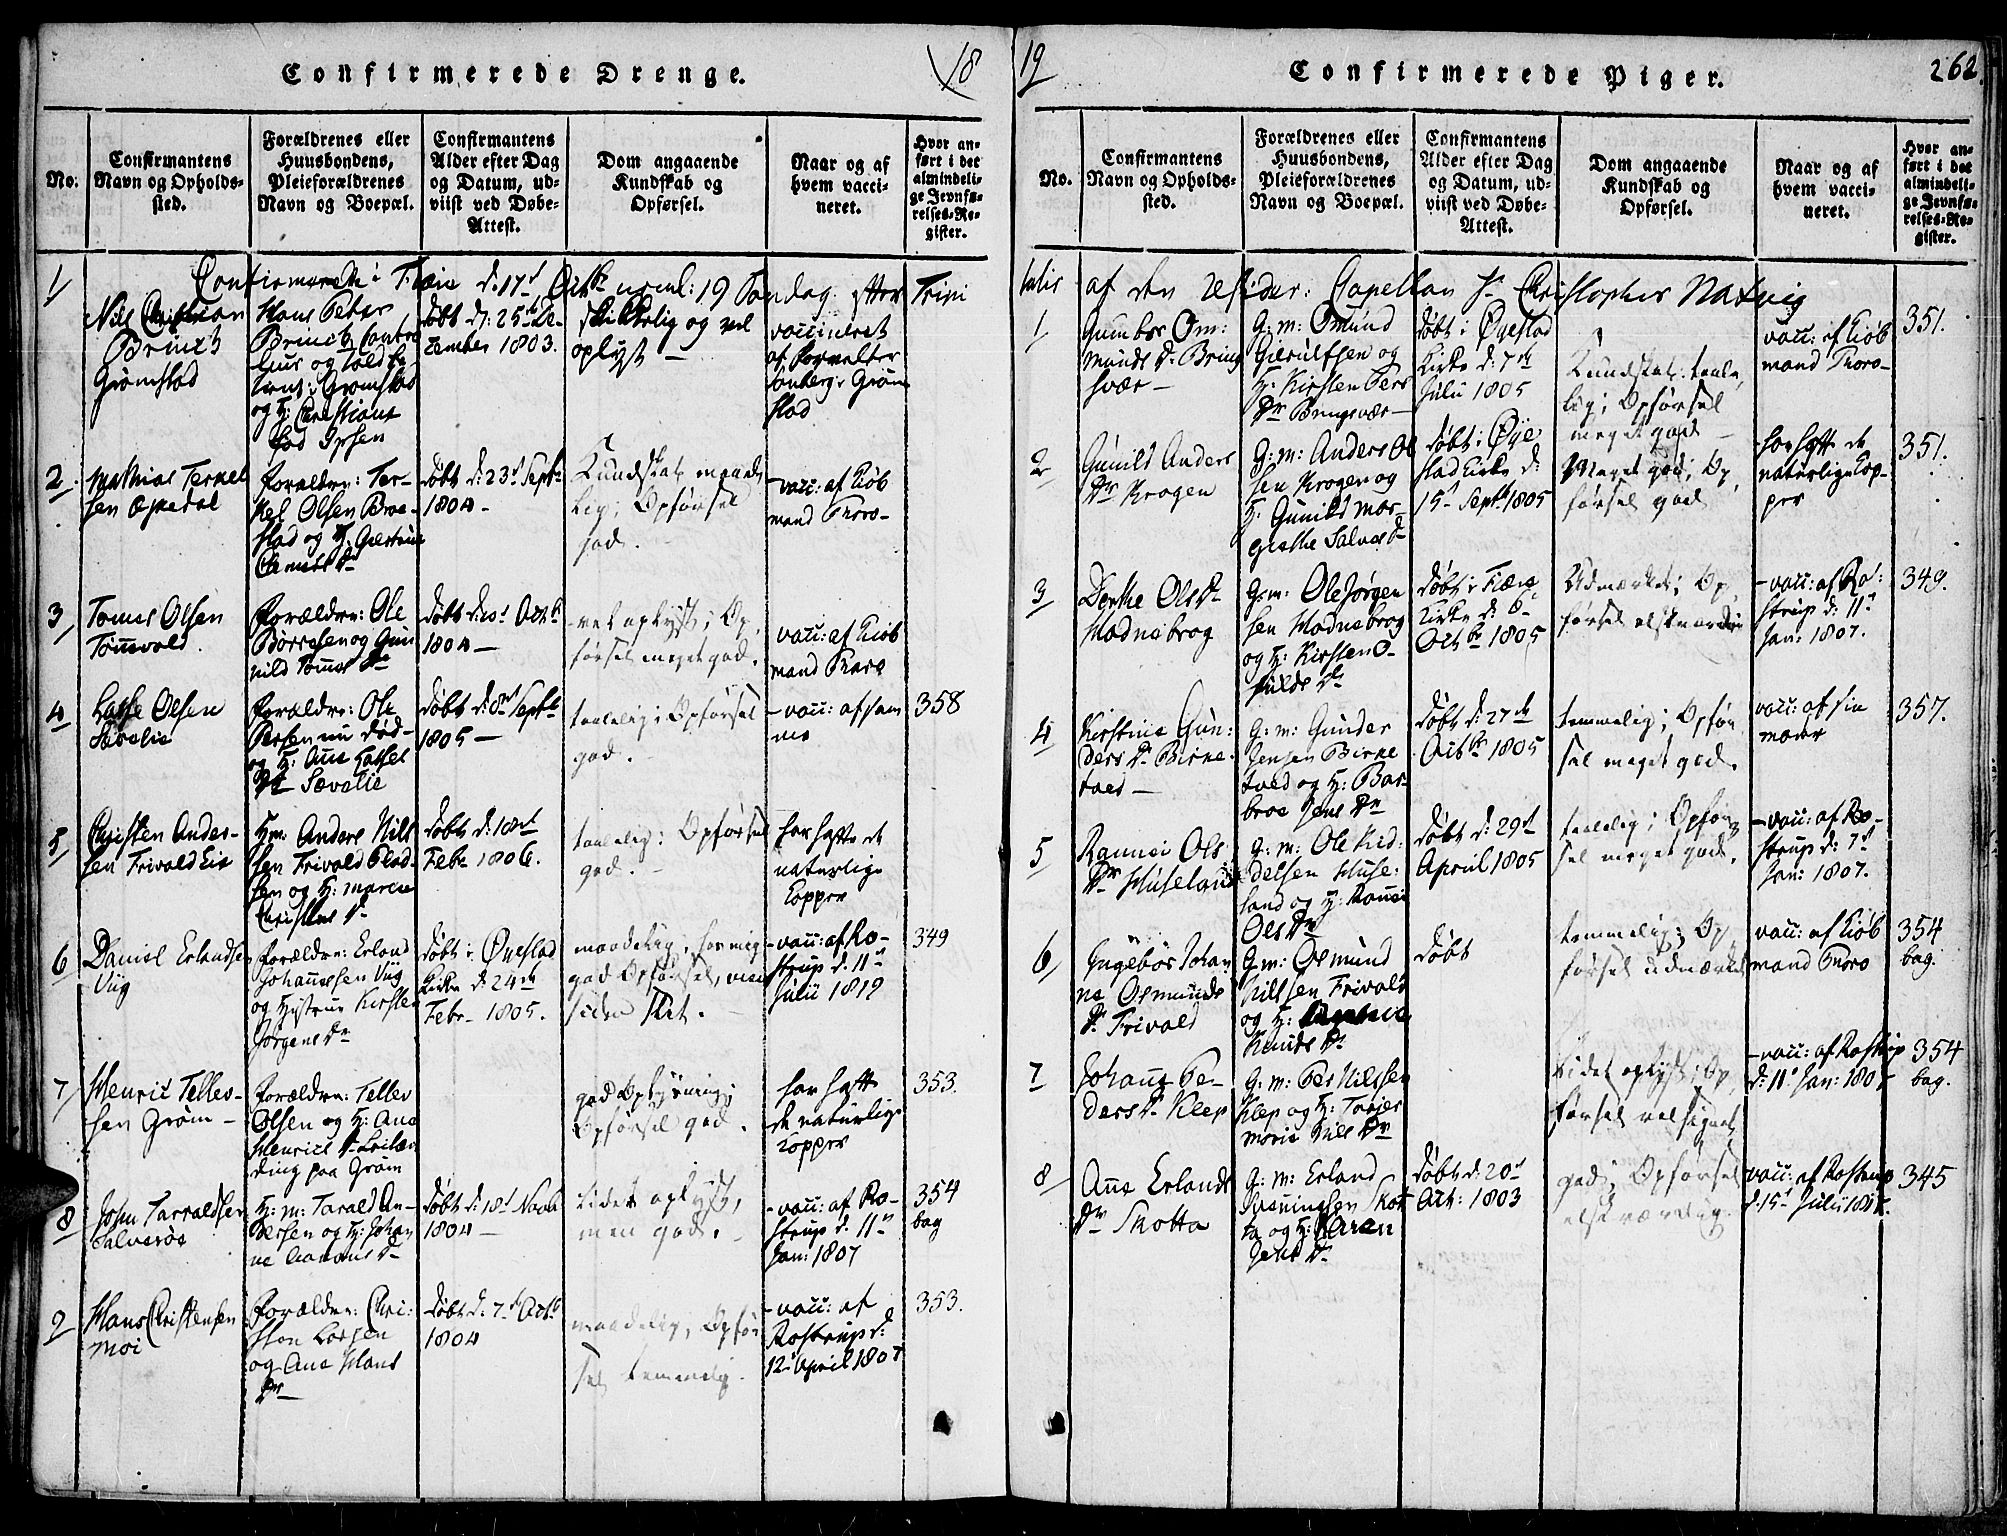 Confirmerede Drenge.
18
No.
Confirmantens
Navn og Opholds-
sted.
Forældrenes eller
Huusbondens,
Pleieforældrenes
Navn og Boepæl.
Confirmantens
Alder efter Dag
og Datum, ud-
viist ved Døbe-
Attest.
Dom angaaende
Kundskab og
Opførsel.
Naar og af
hvem vacci-
neret.
Hvor an-
ført i det
almindeli-
ge Jevnfø-
relses-Re-
gister.
Confirmerede i Fiære d: 17d Octbr neml: 19 Søndag efter Trini
1
Nils Christian
Brinch
Grømstad
Hans Peter
Brinch
og
Grømstad
og H: Christiane
Ipsen
døbt d: 25de De-
zember 1803.
skikkelig og vel
oplyst —
vaccineret
af Forvalter
Grøm
stad
2
Mathias Terkel
sen
Forældre: Ter-
kel Olsen Bree-
stad og H:
døbt d: 23d Septr
1804 -
Kundskab maade
lig; Opførsel
god.
- vacc: af Kiøb
mand Thoro-
3
Tomes Olsen
Tømevold.
Forældre: Ole
Børresen og Gun
nild Tomes Dr
døbt d: Octbr
1804 —
vel oplyst; Op,
førsel meget god.
vacc: af Kiøb
mand Thoro
4
Lasse Olsen
Sævelie
Forældre: Ole
Persen nu død-
og H: Ane Lasses
Dr Sævelie
døbt d: 8d Septbr
1805 —
taalelig; Opførsel
god.
- vacc: af sam
me
358
5
Christen Ander-
sen Frivold Eie
H:m: Anders Nils
sen Frivold
sen og H: Maren
Christens Dr
døbt d: 18d
Febr 1806.
taalelig: Opførsel
god.
har hafte de
naturlige
Kopper
6
Daniel Erlandsen
Viig
Forældre: Erland
Johannesen Viig
og Hustrue Kirsten
Jørgens Dr
døbt i Øyestad
Kirke d: 24de
Febr. 1805.
maadelig,
god Opførsel,
siden slet.
- vacc: af Ro-
strup d: 11te
Julii 1819
349
7
Henric Telles-
sen Grøm -
Forældre: Tellev
Olsen og H: Ane
Henrics Dr
paa Grøm
god Oplysning;
Opførsel god.
har hafte
de naturlige
Kopper
353.
8
John Tarraldsen
Salverøe
H: m: Tarald An-
dersen og H: Johan
ne Aanons Dr
døbt d: 18d Novb
1804 —
Lidet oplyst,
men god.
- vacc: af Ro-
strup d: 11te
Jan: 1807
354
bag
9
Hans Christensen
Moi
Forældre: Chri-
sten Larsen
og Ane Hans
Dr
døbt d: 7d Octb
1804
maadelig, Opfør
sel temmelig.
- vacc: af
Rostrup d:
12te April 1807
353.
19
Confirmerede Piger.
262
No.
Confirmantens
Navn og Opholds-
sted.
Forældrenes eller
Huusbondens,
Pleieforældrenes
Navn og Boepæl.
Confirmantens
Alder efter Dag
og Datum, ud-
viist ved Døbe-
Attest.
Dom angaaende
Kundskab og
Opførsel.
Naar og af
hvem vacci-
neret.
Hvor an-
ført i det
almindeli-
ge Jevnfø-
relses-Re-
gister.
tatis af den resider: Capellan Hr Christopher Natvig
1
Gumbor Om:
munds Dr Bring
svær —
G: m: Omund
Gierulfsen og
H: Kirsten Pers
Dr Bringsvær —
døbt i Øyestad
Kirke d: 7de
Julii 1805
Kundskab taale,
lig; Opførsel
meget god —
vacc: af Kiøb
mand Thoro-
351.
2
Gunild Anders
Dr Krogen
G: m: Anders Ol
sen Krogen og
H: Gunild Mar-
grethe Salves Dr
døbt i Øye
stad Kirke d:
15d Septbr 1805
Meget god; Op,
førsel god
har hafte de
naturlige Kop-
per
351.
3
Dorthe Ols Dr
Hodnebrog
G: m: Ole Jørgen
sen Hodnebrog
og H: Kirsten
Dr
døbt i Fiære
Kirke d: 6-
Octbr 1805
Udmærket; Op,
førsel elskværdig
- vacc: af Ro:
strup d: 11te
Jan: 1807.
349.
4
Kirstine Gun:
ders Dr Birke-
tved —
G: m: Gunder
Jensen Birke
tved og H: Bar-
broe Jens Dr
døbt d: 27de
Octbr 1805
temmelig; Opfør
sel meget god.
vacc: af sin
moder
357.
5
Rannei Ols
Dr Huseland
G: m: Ole Kid:
delsen Huse:
land og H: Rannei
Ols Dr
døbt d: 29d
April 1805
taalelig; Opfør,
sel meget god.
- vacc: af Ro-
strup d: 7d
Jan: 1807.
6
Ingebor Johan
ne Osmunds
Dr Frivold
G: m: Osmund
Nilssen Frivold
og H:
Knuds Dr
døbt
temmelig; Op
førsel udmærket
vacc: af Kiøb
mand Thoro
354
bag.
7
Johanne Pe-
ders Dr Klep
G: m: Per Nilssen
Klep og H: Torjer
Marie Nils Dr
Lidet oplyst; Op,
førsel
- vacc: af Rostrup
d: 11te Jan: 1807
354
bag.
8
Ane Erlands
Dr Skotta
G: m: Erland
Svenningsen Skot
ta og H: Karen
Jens Dr
døbt d: 20d
Oct: 1803
god; Opførsel
elskværdig.
vacc: af Rostrup
d: 15d Julii
345